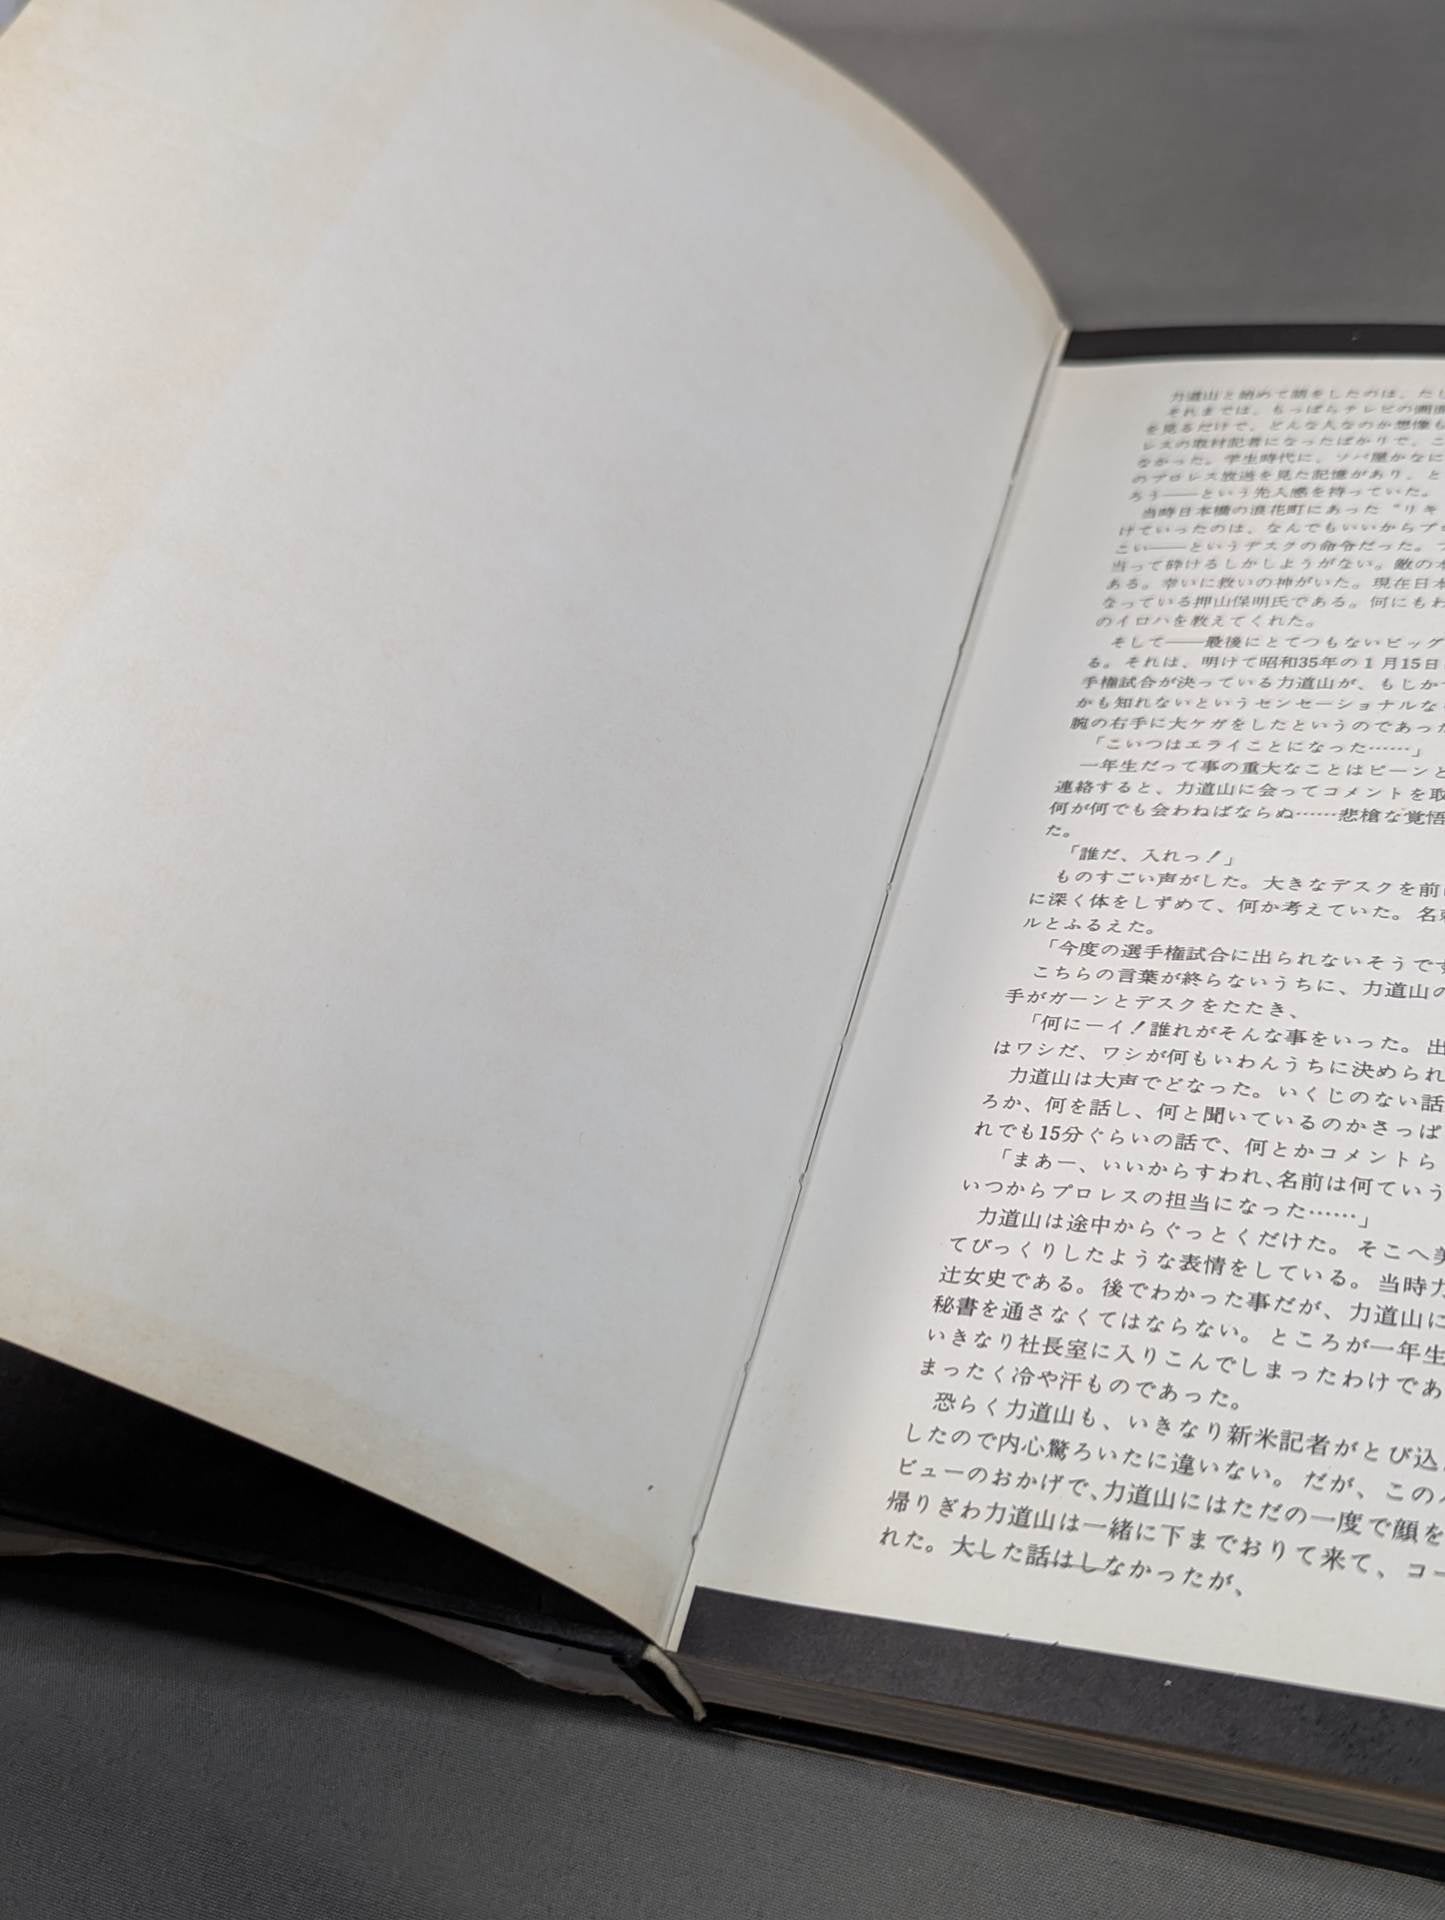 力道山と始めて話をしたのは、たし
それまでは、もっぱらテレビの画面
を見るだけで、どんな人なのか想像も
レスの取材記者になったばかりで、こ
なかった。学生時代に、ソバ屋かなに
のプロレス放送を見た記憶があり、と
ろう——という先入感を持っていた。
当時日本橋の浪花町にあった“リキ
けていったのは、なんでもいいからプロ
こい——というデスクの命令だった。
当って砕けるしかしようがない。敵の本
ある。幸いに救いの神がいた。現在日本
なっている押山保明氏である。何にもわ
のイロハを教えてくれた。
そして——最後にとてつもないビッグ
る。それは、明けて昭和35年の1月15日
手権試合が決っている力道山が、もしか
かも知れないというセンセーショナルな
腕の右手に大ケガをしたというのであった
「こいつはエライことになった……」
一年生だって事の重大なことはピーンと
連絡すると、力道山に会ってコメントを取
何が何でも会わねばならぬ……悲槍な覚悟
た。
「誰だ、入れっ！」
ものすごい声がした。大きなデスクを前に
に深く体をしずめて、何か考えていた。名刺
ルとふるえた。
「今度の選手権試合に出られないそうです
こちらの言葉が終らないうちに、力道山の
手がガーンとデスクをたたき、
「何にーイ！誰れがそんな事をいった。出
はワシだ、ワシが何もいわんうちに決められ
力道山は大声でどなった。いくじのない話
ろか、何を話し、何と聞いているのかさっぱ
れでも15分ぐらいの話で、何とかコメントら
「まあー、いいからすわれ、名前は何ていう
いつからプロレスの担当になった……」
力道山は途中からぐっとくだけた。そこへ美
てびっくりしたような表情をしている。当時力
辻女史である。後でわかった事だが、力道山に
秘書を通さなくてはならない。ところが一年生
いきなり社長室に入りこんでしまったわけであ
まったく冷や汗ものであった。
恐らく力道山も、いきなり新米記者がとび込
したので内心驚ろいたに違いない。だが、この
ビューのおかげで、力道山にはただの一度で顔を
帰りぎわ力道山は一緒に下までおりて来て、コー
れた。大した話はしなかったが、